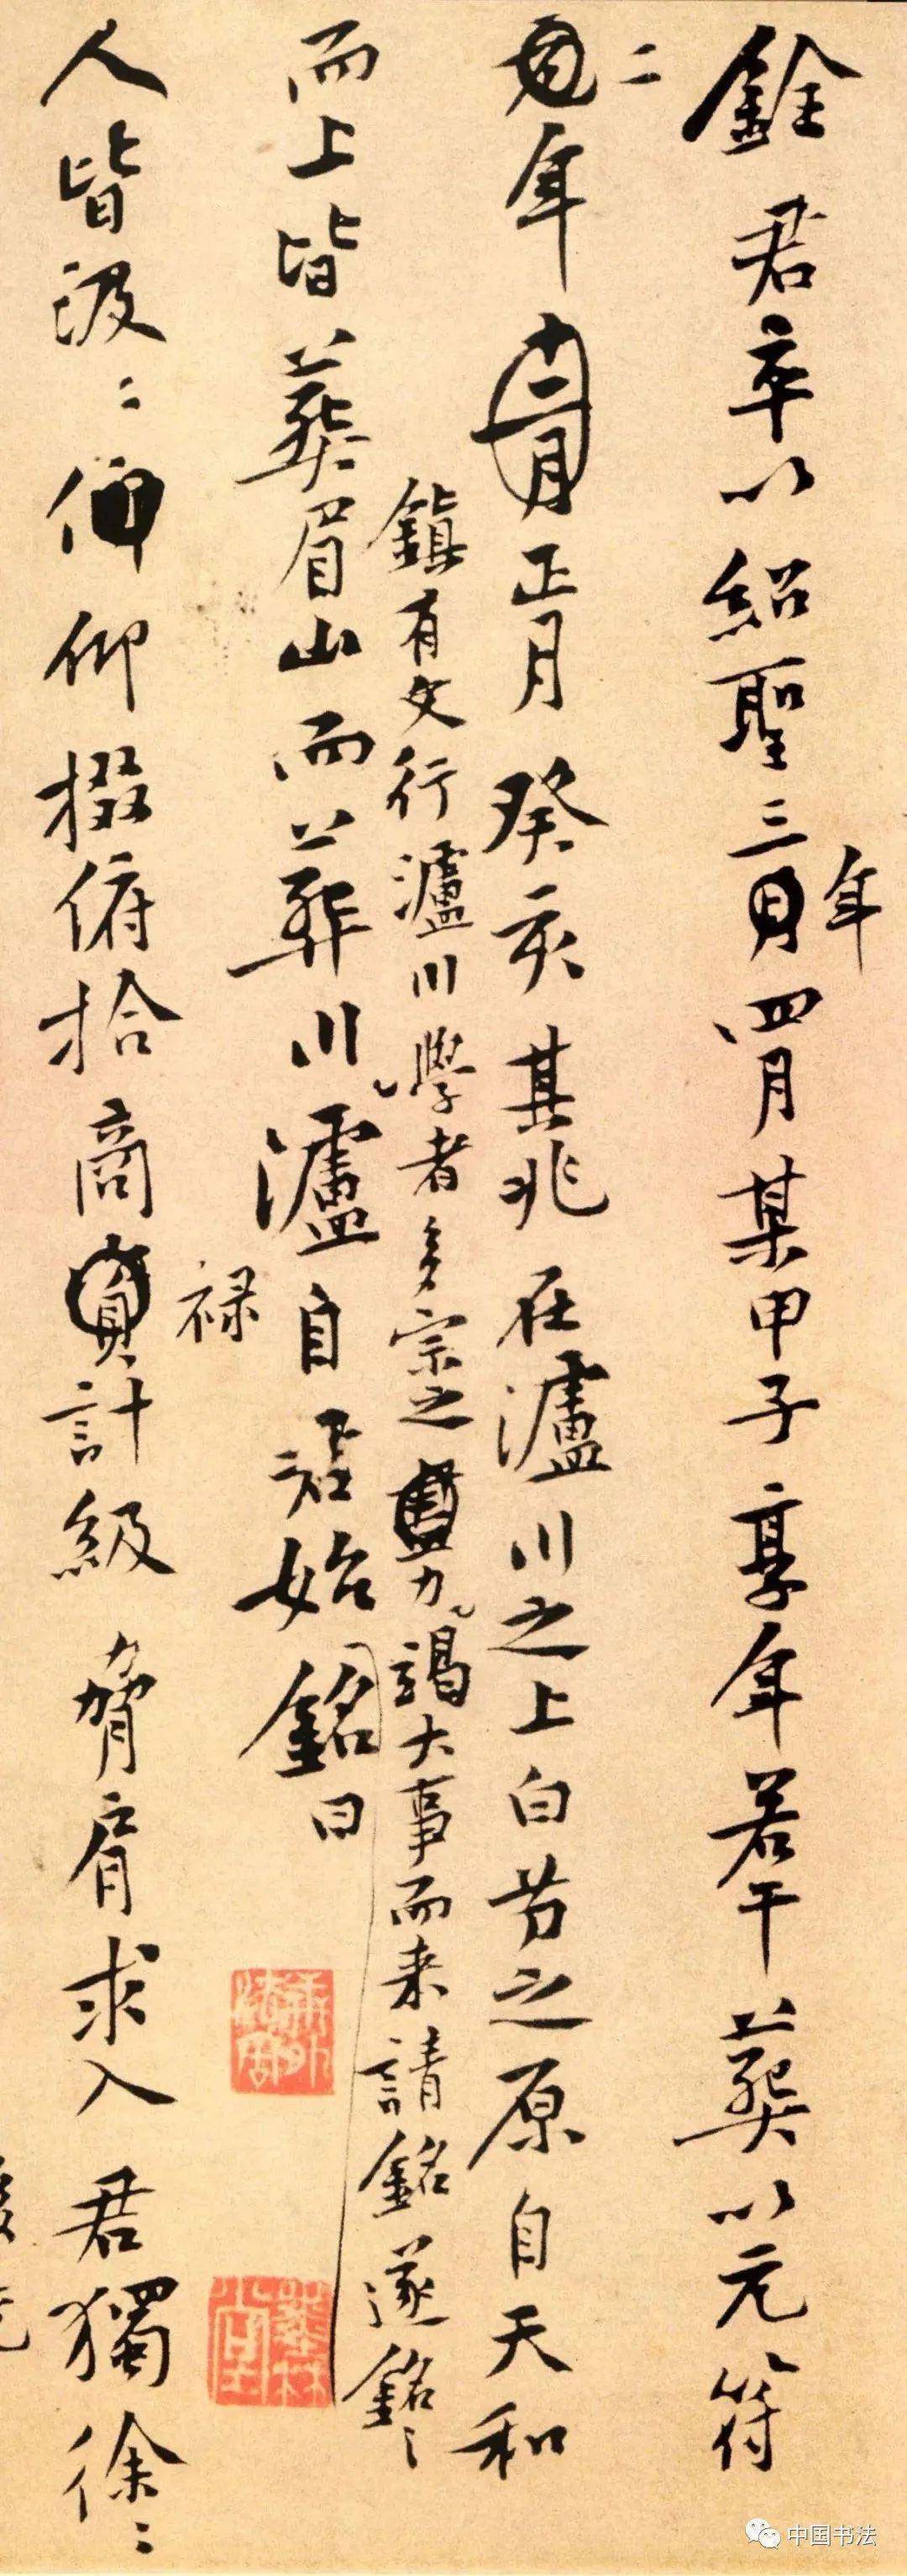 銓君卒以紹聖三年四月某甲子享年若干葬以元符
二年正月癸亥其兆在瀘川之上白芀之原自天和
鎮有文行瀘川學者多宗之力謁大事而来請銘遂銘
而上皆葬眉山而葬川瀘自始銘曰
人皆汲〻仰掇俯拾商祿計級脅肩求入君獨徐〻
中国书法